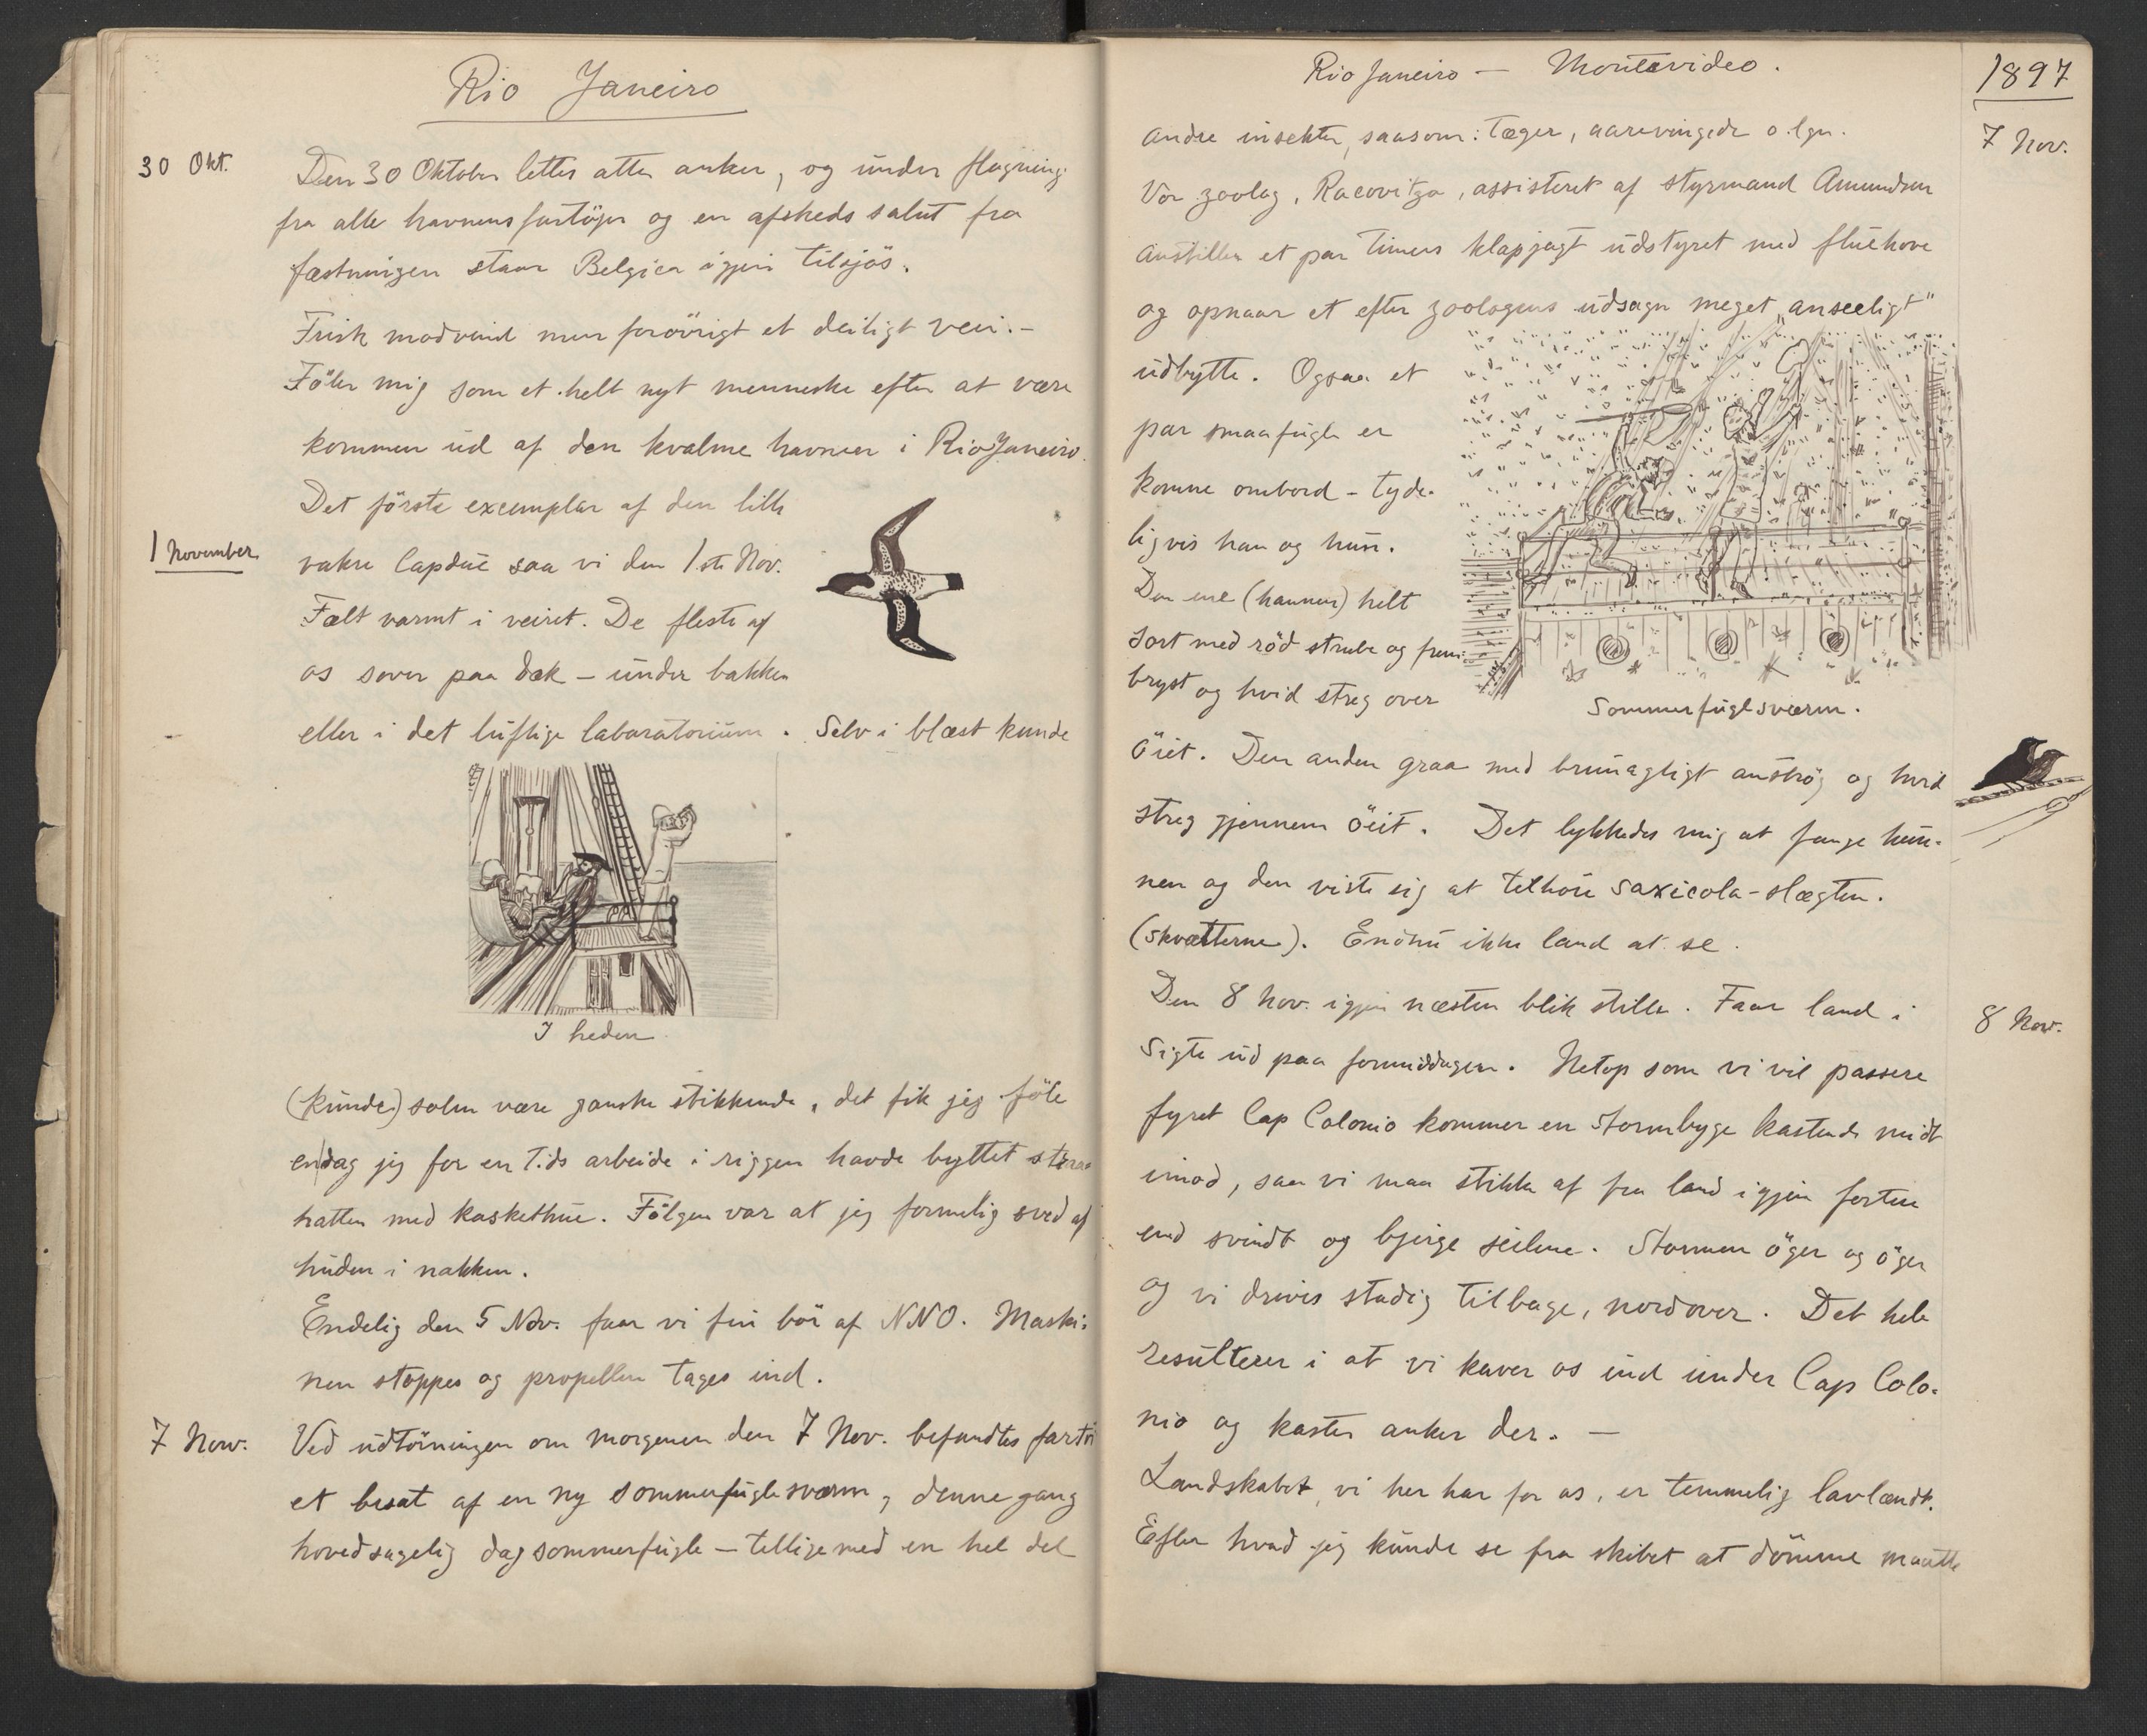 Rio Janeiro
30 Okt.
Den 30 Oktober lettes atter anker, og under flagning
fra alle havnens fartöjer og en afskeds salut fra
fæstningen staar Belgica igjen tilsjös.
Frisk modvind men forövrigt et deiligt veir. –
Föler mig som et helt nyt menneske efter at være
kommen ud af den kvalme havnen i Rio Janeiro.
Det förste exemplar af den lille
1 November
vakre Capdue saa vi den 1ste Nov.
Fælt varmt i veiret. De fleste af
os sover paa dæk – under bakken
eller i det luftige laboratorium. Selv i blæst kunde
I heden
(kunde) solen være ganske stikkende, det fik jeg föle
en dag jeg for en tids arbeide i riggen havde byttet straa
hatten med kaskethue. Fölgen var at jeg formelig sved af
huden i nakken.
Endelig den 5 Nov. faar vi fin bör af NNO. Maski-
nen stoppes og propellen tages ind.
7 Nov.
Ved udtörningen om morgenen den 7 Nov. befandtes fartöi
et besat af en ny sommerfuglesværm, denne gang
hovedsagelig dagsommerfugle – tilligemed en hel del
Rio Janeiro – Montevideo.
1897
7 Nov.
andre insekter, saasom: tæger, aarevingede o. lgn.
Vor zoolog, Racovitza, assisteret af styrmand Amundsen
anstiller et par timers klapjagt udstyret med fluehove
og opnaar et efter zoologens udsagn meget „anseeligt"
udbytte. Ogsaa et
par smaafugle er
komne ombord – tyde-
ligvis han og hun.
Den ene (hannen) helt
sort med röd strube og frem-
bryst og hvid streg over
Sommerfuglsværm.
öiet. Den anden graa med brunagtigt anströg og hvid
streg gjennem öiet. Det lykkedes mig at fange hun-
nen og den viste sig at tilhöre saxicola-slægten.
(skvætterne). Endnu ikke land at se.
8 Nov.
Den 8 Nov. igjen næsten blik stille. Faar land i
sigte ud paa formiddagen. Netop som vi vil passere
fyret Cap Colonio kommer en stormbyge kastende midt
imod, saa vi maa stikke af fra land igjen fortere
end svindt og bjerge seilene. Stormen öger og öger
og vi drives stadig tilbage, nordover. Det hele
resulterer i at vi kaver os ind under Cap Colo-
nio og kaster anker der. –
Landskabet, vi her har for os, er temmelig lavlændt.
Efter hvad jeg kunde se fra skibet at dömme maatte